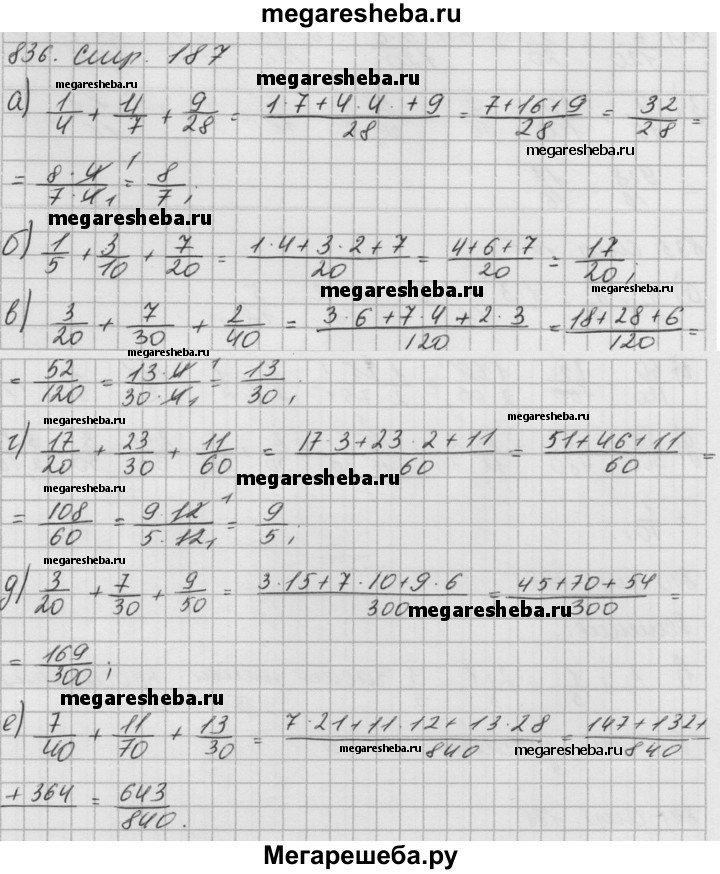 megaresheba.ru
836. стр. 187
megaresheba.ru megaresheba.ru
а) 1/4 + 4/7 + 9/28 = (1·7+4·4·+9)/28 = (7+16+9)/28 = 32/28 =
megaresheba.ru
= (8·4)/(7·4₁)¹ = 8/7;
megaresheba.ru
б) 1/5 + 3/10 + 7/20 = (1·4+3·2+7)/20 = (4+6+7)/20 = 17/20;
megaresheba.ru megaresheba.ru
в) 3/20 + 7/30 + 2/40 = (3·6+7·4+2·3)/120 = (18+28+6)/120 =
megaresheba.ru
= 52/120 = (13·4¹)/(30·4₁) = 13/30;
megaresheba.ru
г) 17/20 + 23/30 + 11/60 = (17·3+23·2+11)/60 = (51+46+11)/60 =
megaresheba.ru megaresheba.ru
= 108/60 = (9·12¹)/(5·12₁) = 9/5;
megaresheba.ru
д) 3/20 + 7/30 + 9/50 = (3·15+7·10+9·6)/300 = (45+70+54)/300 =
megaresheba.ru
= 169/300;
megaresheba.ru
е) 7/40 + 11/70 + 13/30 = (7·21+11·12+13·28)/840 = (147+132+)/840
megaresheba.ru megaresheba.ru
+364 = 643/840.
Мегарешеба.ру